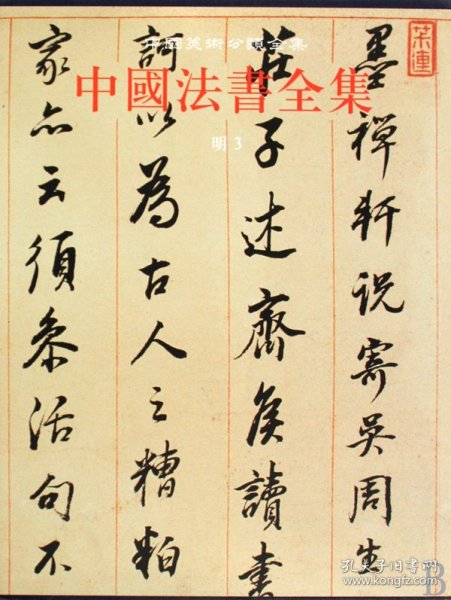 中國美術分類全集
中國法書全集
明 3
墨禪軒説寄吳周生
莊子述齊侯讀書
訶以為古人之糟粕
家亦云須參活句不
孔夫子旧书网
www.kongfz.com
B